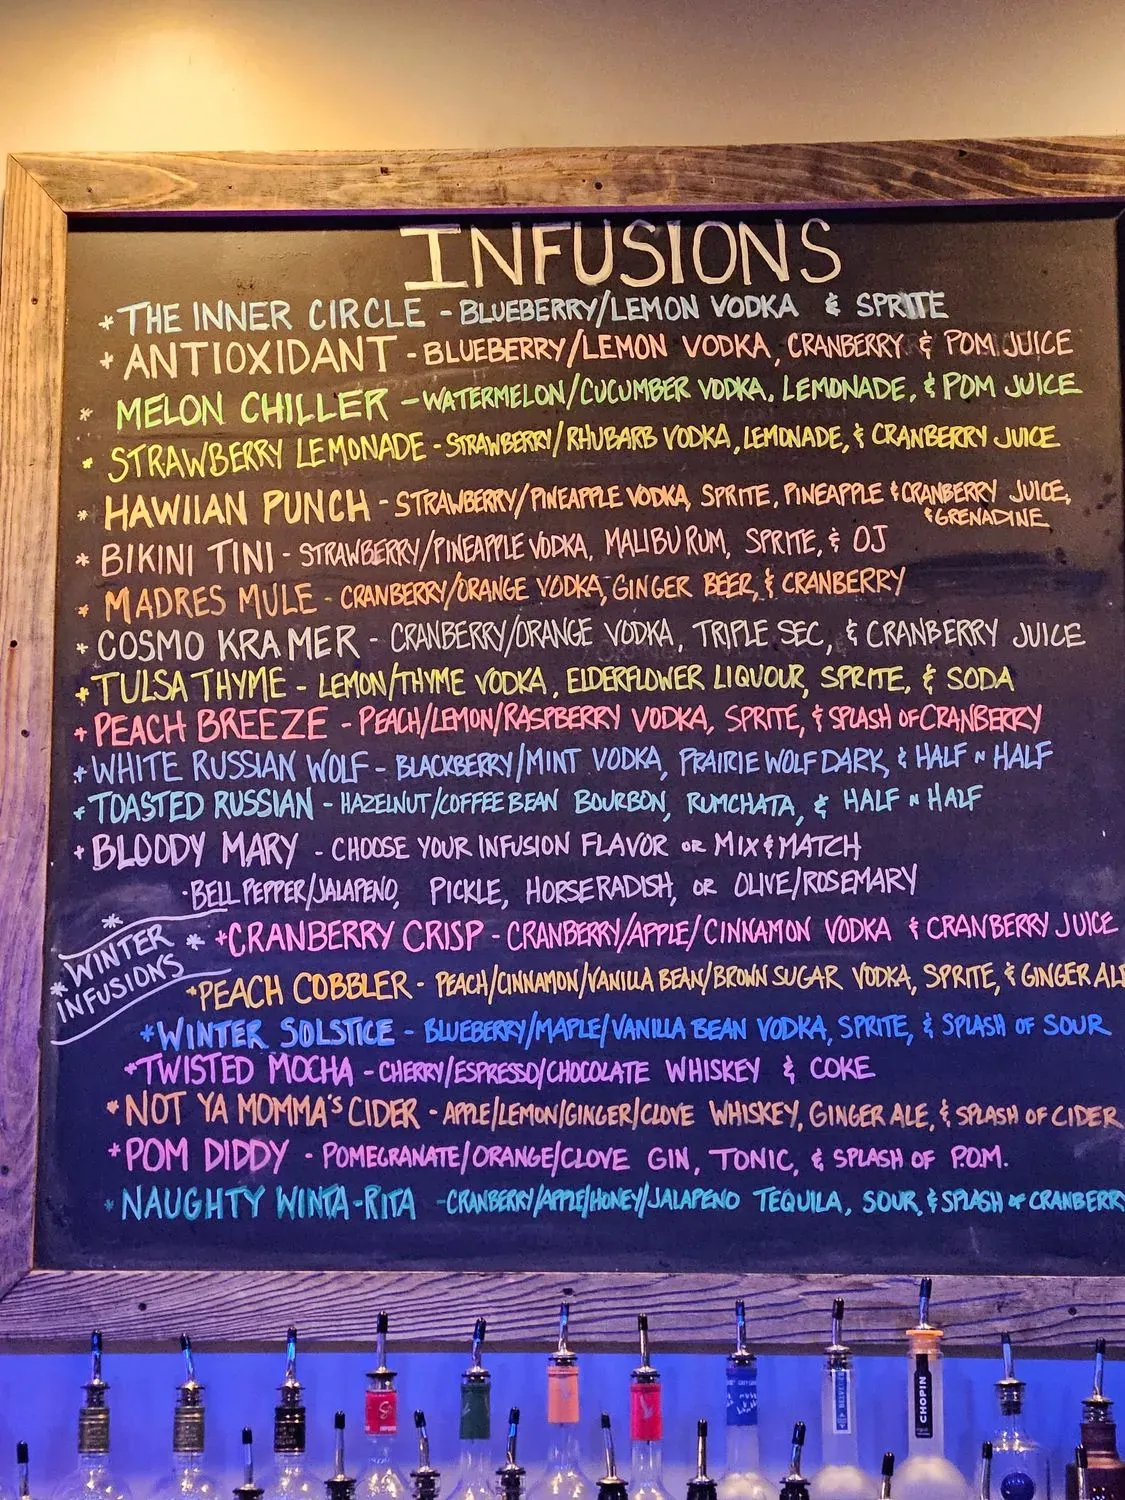 INFUSIONS
*THE INNER CIRCLE - BLUEBERRY/LEMON VODKA & SPRITE
*ANTIOXIDANT - BLUEBERRY/LEMON VODKA, CRANBERRY & POM JUICE
* MELON CHILLER - WATERMELON/CUCUMBER VODKA, LEMONADE, & POM JUICE
* STRAWBERRY LEMONADE - STRAWBERRY/RHUBARB VODKA, LEMONADE, & CRANBERRY JUICE
* HAWIIAN PUNCH - STRAWBERRY/PINEAPPLE VODKA, SPRITE, PINEAPPLE & CRANBERRY JUICE,
& GRENADINE
* BIKINI TINI - STRAWBERRY/PINEAPPLE VODKA, MALIBU RUM, SPRITE, & OJ
* MADRES MULE - CRANBERRY/ORANGE VODKA, GINGER BEER, & CRANBERRY
* COSMO KRAMER - CRANBERRY/ORANGE VODKA, TRIPLE SEC, & CRANBERRY JUICE
* TULSA THYME - LEMON/THYME VODKA, ELDERFLOWER LIQUOUR, SPRITE, & SODA
* PEACH BREEZE - PEACH/LEMON/RASPBERRY VODKA, SPRITE, & SPLASH OF CRANBERRY
* WHITE RUSSIAN WOLF - BLACKBERRY/MINT VODKA, PRAIRIE WOLF DARK, & HALF N HALF
* TOASTED RUSSIAN - HAZELNUT/COFFEE BEAN BOURBON, RUMCHATA, & HALF N HALF
* BLOODY MARY - CHOOSE YOUR INFUSION FLAVOR OR MIX & MATCH
·BELL PEPPER/JALAPENO, PICKLE, HORSERADISH, OR OLIVE/ROSEMARY
* WINTER INFUSIONS * *
*CRANBERRY CRISP - CRANBERRY/APPLE/CINNAMON VODKA & CRANBERRY JUICE
*PEACH COBBLER - PEACH/CINNAMON/VANILLA BEAN/BROWN SUGAR VODKA, SPRITE, & GINGER AL
*WINTER SOLSTICE - BLUEBERRY/MAPLE/VANILLA BEAN VODKA, SPRITE, & SPLASH OF SOUR
*TWISTED MOCHA - CHERRY/ESPRESSO/CHOCOLATE WHISKEY & COKE
*NOT YA MOMMA'S CIDER - APPLE/LEMON/GINGER/CLOVE WHISKEY, GINGER ALE, & SPLASH OF CIDER
*POM DIDDY - POMEGRANATE/ORANGE/CLOVE GIN, TONIC, & SPLASH OF P.O.M.
*NAUGHTY WINTA-RITA - CRANBERRY/APPLE/HONEY/JALAPENO TEQUILA, SOUR, & SPLASH OF CRANBERRY
CHOPIN
BELVEDERE